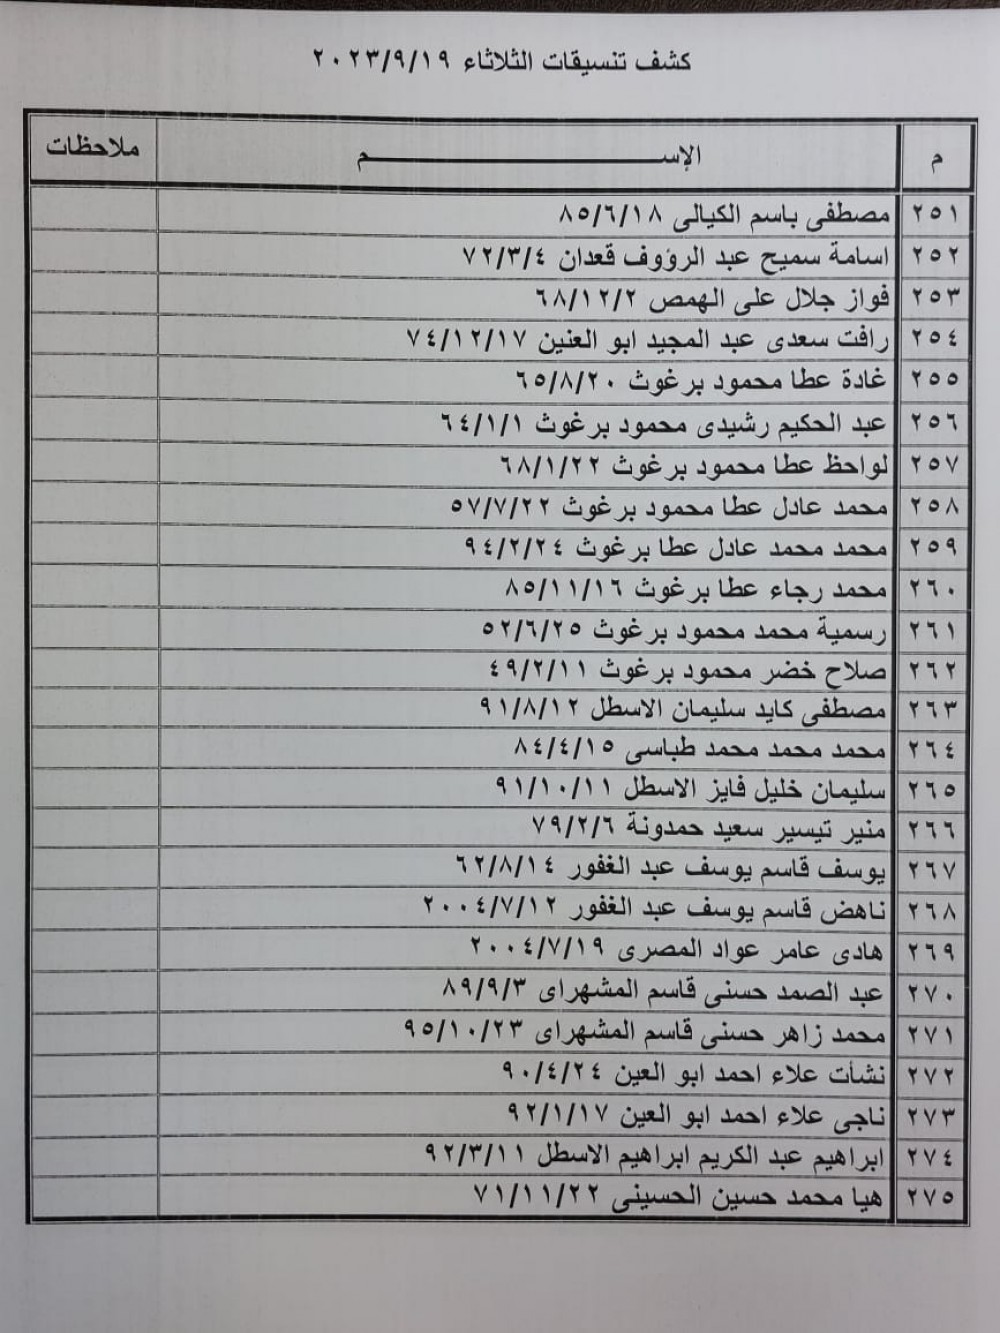 كشف تنسيقات الثلاثاء ٢٠٢٣/٩/١٩
م الإســـــــــــــــــــــم ملاحظات
٢٥١ مصطفى باسم الكيالى ٨٥/٦/١٨
٢٥٢ اسامة سميح عبد الرؤوف قعدان ٧٢/٣/٤
٢٥٣ فواز جلال على الهمص ٦٨/١٢/٢
٢٥٤ رافت سعدى عبد المجيد ابو العنين ٧٤/١٢/١٧
٢٥٥ غادة عطا محمود برغوث ٦٥/٨/٢٠
٢٥٦ عبد الحكيم رشيدى محمود برغوث ٦٤/١/١
٢٥٧ لواحظ عطا محمود برغوث ٦٨/١/٢٢
٢٥٨ محمد عادل عطا محمود برغوث ٥٧/٧/٢٢
٢٥٩ محمد محمد عادل عطا برغوث ٩٤/٢/٢٤
٢٦٠ محمد رجاء عطا برغوث ٨٥/١١/١٦
٢٦١ رسمية محمد محمود برغوث ٥٢/٦/٢٥
٢٦٢ صلاح خضر محمود برغوث ٤٩/٢/١١
٢٦٣ مصطفى كايد سليمان الاسطل ٩١/٨/١٢
٢٦٤ محمد محمد محمد طباسى ٨٤/٤/١٥
٢٦٥ سليمان خليل فايز الاسطل ٩١/١٠/١١
٢٦٦ منير تيسير سعيد حمدونة ٧٩/٢/٦
٢٦٧ يوسف قاسم يوسف عبد الغفور ٦٢/٨/١٤
٢٦٨ ناهض قاسم يوسف عبد الغفور ٢٠٠٤/٧/١٢
٢٦٩ هادى عامر عواد المصرى ٢٠٠٤/٧/١٩
٢٧٠ عبد الصمد حسنى قاسم المشهراى ٨٩/٩/٣
٢٧١ محمد زاهر حسنى قاسم المشهراى ٩٥/١٠/٢٣
٢٧٢ نشأت علاء احمد ابو العين ٩٠/٤/٢٤
٢٧٣ ناجى علاء احمد ابو العين ٩٢/١/١٧
٢٧٤ ابراهيم عبد الكريم ابراهيم الاسطل ٩٢/٣/١١
٢٧٥ هيا محمد حسين الحسينى ٧١/١١/٢٢